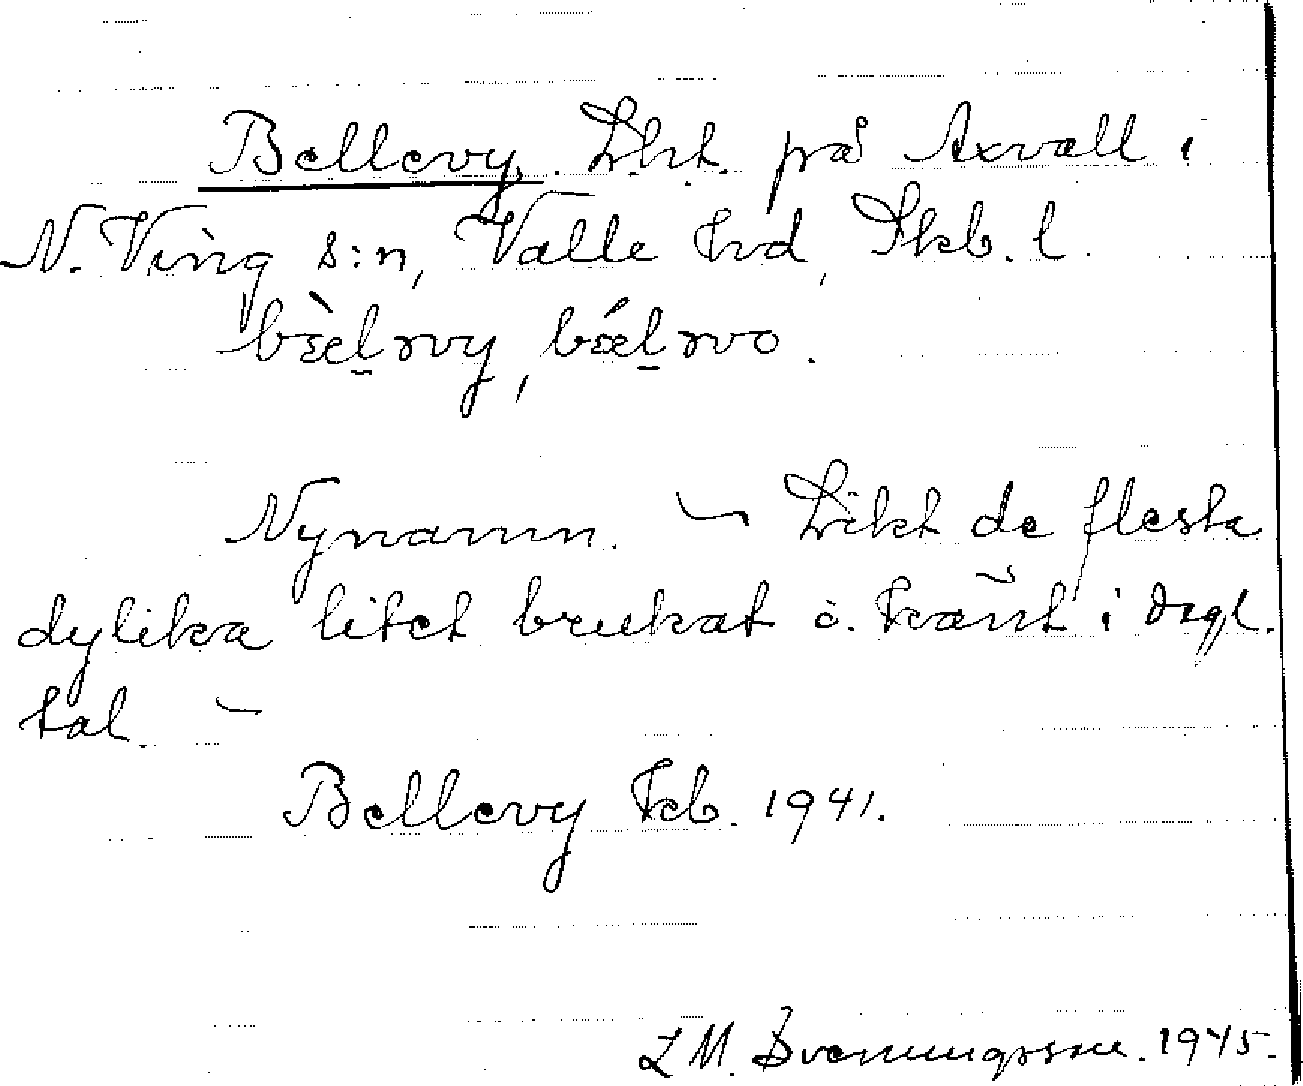 Bellevy. Lht. på Axvall i
N. Ving s:n, Valle hd, Skb. l.
Nynamn. ~ Likt de flesta
dylika litet brukat o. känt i dagl.
tal. ~
Bellevy Fcb. 1941.
L M. Svenningsson. 1945.